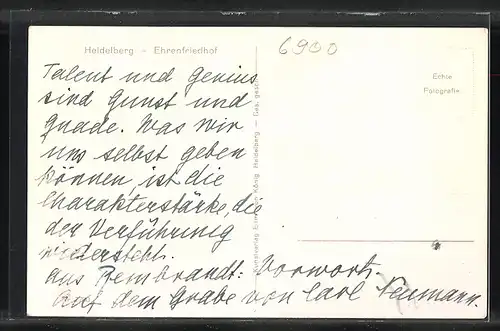 Heidelberg – Ehrenfriedhof
6900
Talent und Genius
sind Gunst und
Gnade. Was wir
uns selbst geben
können, ist die
Charakterstärke, die
der Verführung
widersteht.
aus Rembrandt: Vorwort.
Auf dem Grabe von Carl Neumann.
König, Heidelberg — Ges. gesch.
Echte
Fotografie